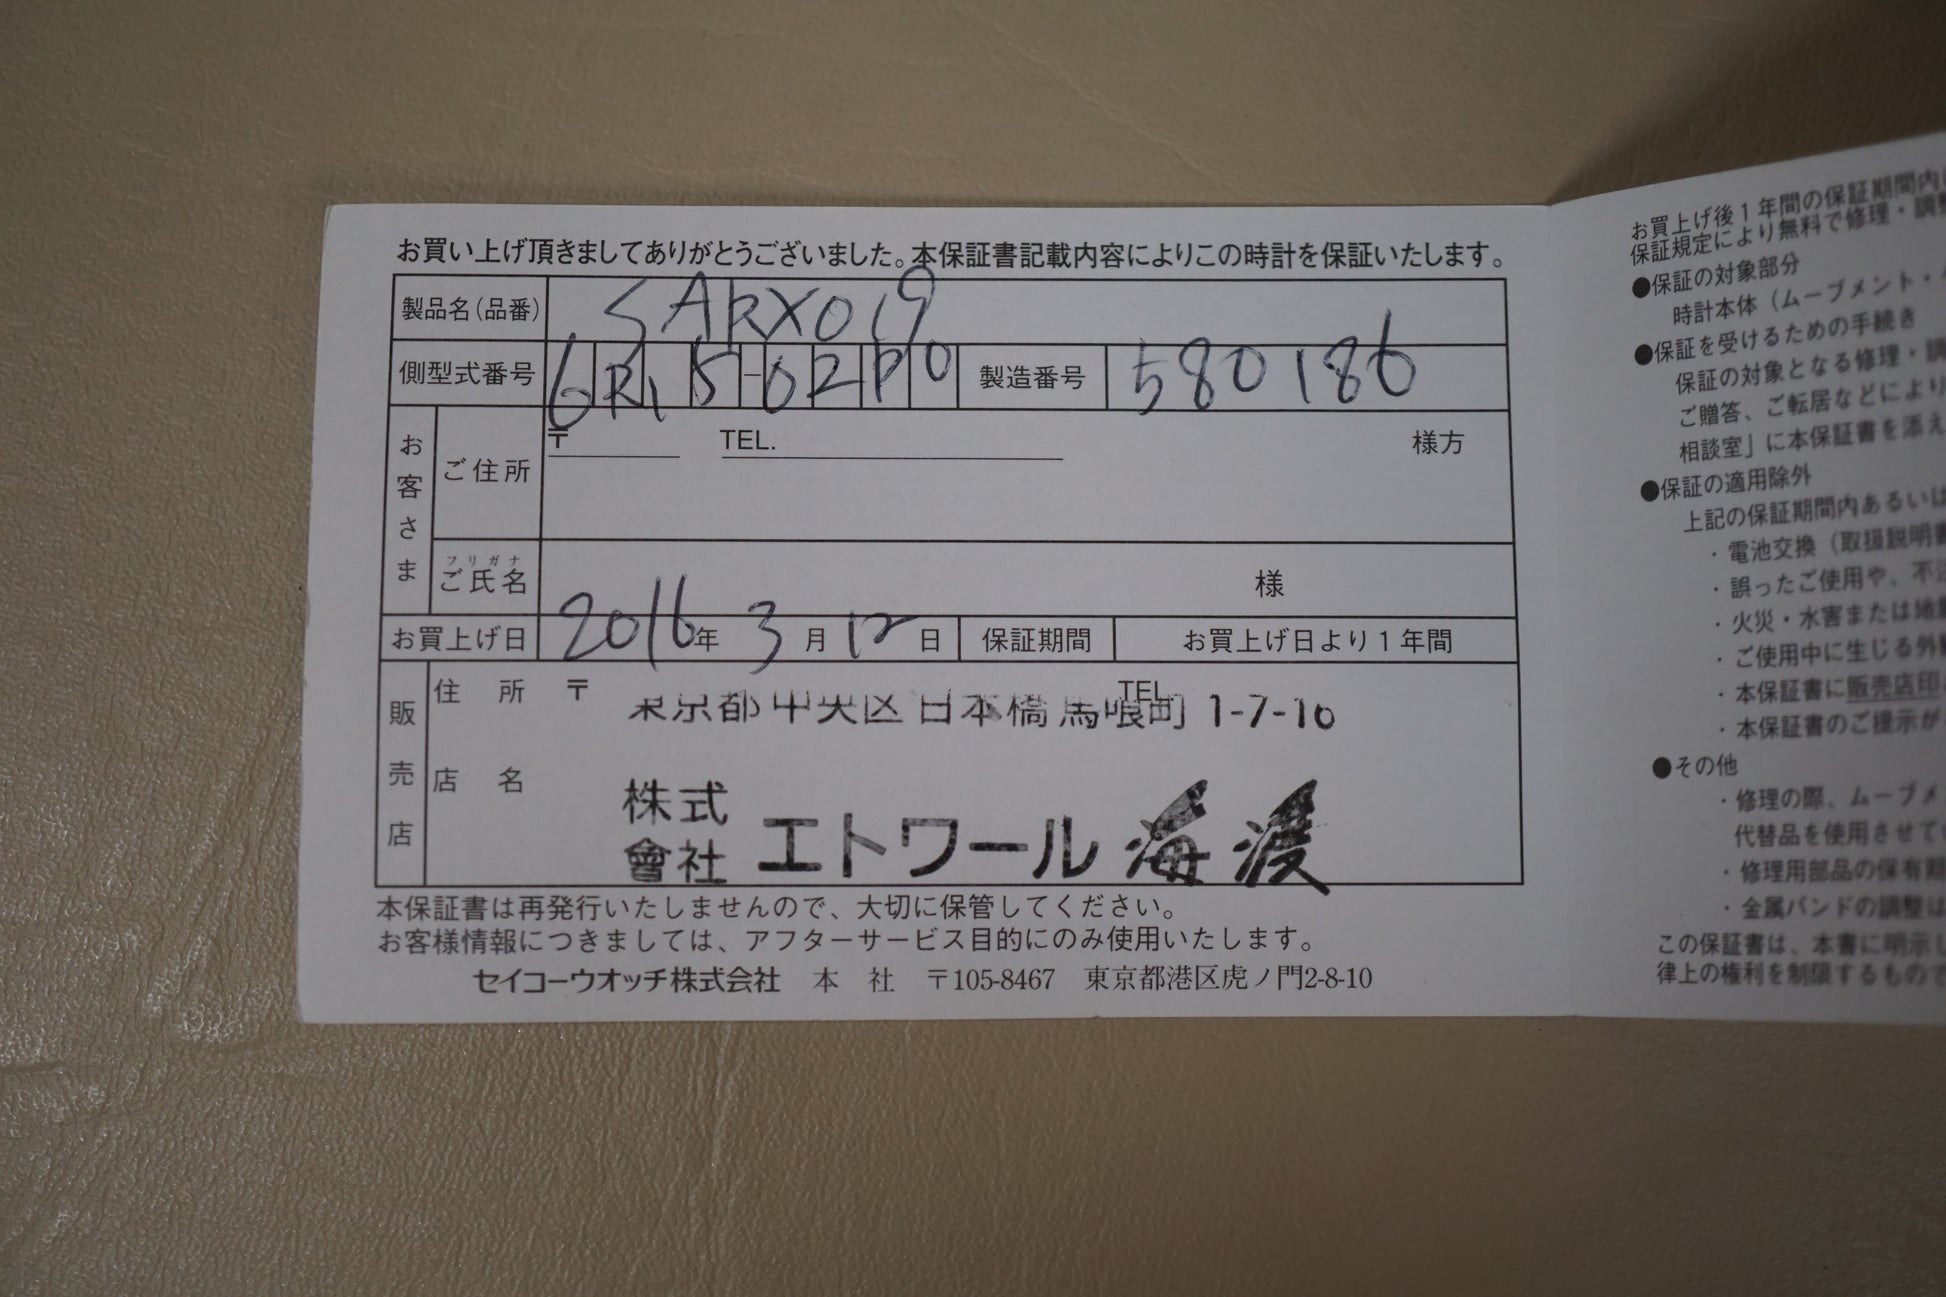 お買い上げ頂きましてありがとうございました。本保証書記載内容によりこの時計を保証いたします。
製品名(品番) SARX019
側型式番号 6R15-02P0 製造番号 580186
お客さま
ご住所 〒 TEL. 様方
フリガナ
ご氏名 様
お買上げ日 2016年 3月 12日 保証期間 お買上げ日より1年間
販売店
住所 〒 TEL.
東京都中央区日本橋馬喰町1-7-10
店名 株式會社 エトワール海渡
本保証書は再発行いたしませんので、大切に保管してください。
お客様情報につきましては、アフターサービス目的にのみ使用いたします。
セイコーウオッチ株式会社 本 社 〒105-8467 東京都港区虎ノ門2-8-10
お買上げ後1年間の保証期間内
保証規定により無料で修理・調
●保証の対象部分
時計本体（ムーブメント・
●保証を受けるための手続き
保証の対象となる修理・調
ご贈答、ご転居などにより
相談室」に本保証書を添え
●保証の適用除外
上記の保証期間内あるいは
・電池交換（取扱説明書
・誤ったご使用や、不
・火災・水害または地
・ご使用中に生じる外
・本保証書に販売店印
・本保証書のご提示が
●その他
・修理の際、ムーブメ
代替品を使用させて
・修理用部品の保有期
・金属バンドの調整は
この保証書は、本書に明示し
律上の権利を制限するもので